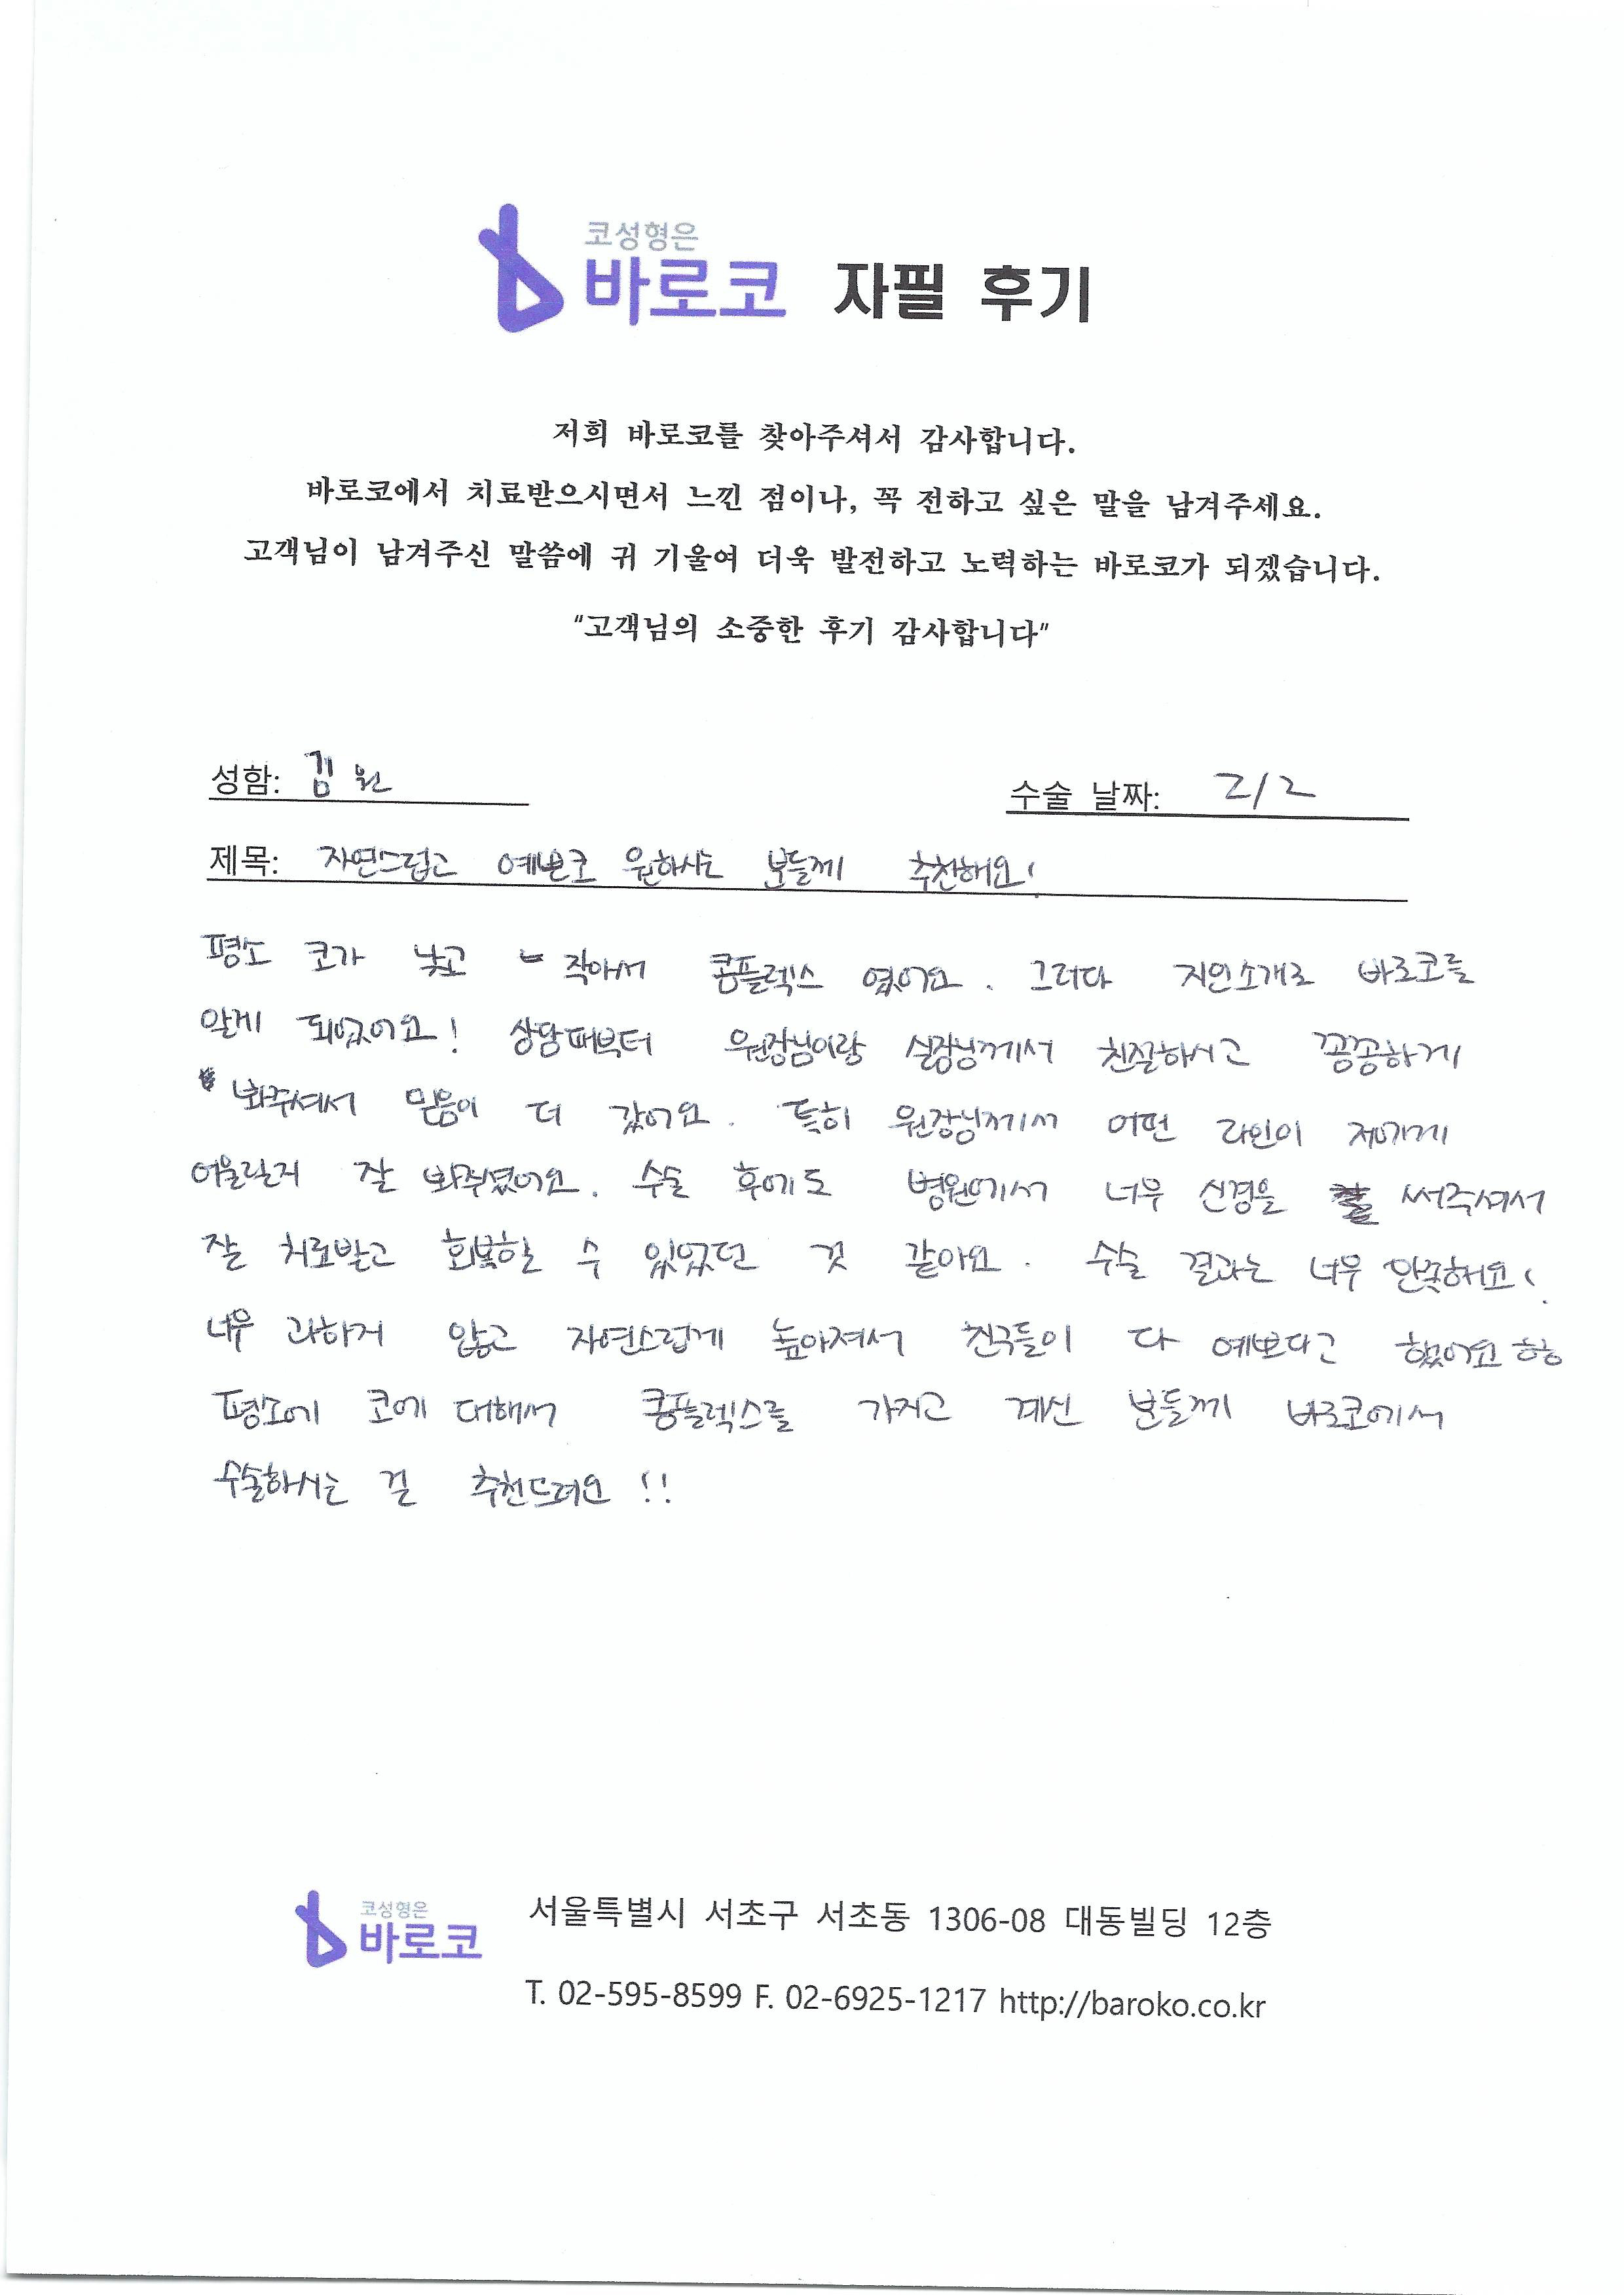 코성형은
바로코 자필 후기
저희 바로코를 찾아주셔서 감사합니다.
바로코에서 치료받으시면서 느낀 점이나, 꼭 전하고 싶은 말을 남겨주세요.
고객님이 남겨주신 말씀에 귀 기울여 더욱 발전하고 노력하는 바로코가 되겠습니다.
"고객님의 소중한 후기 감사합니다"
성함: 김 원 수술 날짜: 2/2
제목: 자연스럽고 예쁜코 원하시는 분들께 추천해요!
평소 코가 낮고 작아서 콤플렉스 였어요. 그러다 지인소개로 바로코를
알게 되었어요! 상담때부터 원장님이랑 실장님께서 친절하시고 꼼꼼하게
봐주셔서 믿음이 더 갔어요. 특히 원장님께서 어떤 라인이 제게
어울릴지 잘 봐주셨어요. 수술 후에도 병원에서 너무 신경을 써주셔서
잘 치료받고 회복할 수 있었던 것 같아요. 수술 결과는 너무 만족해요!
너무 과하지 않고 자연스럽게 높아져서 친구들이 다 예쁘다고 했어요
평소에 코에 대해서 콤플렉스를 가지고 계신 분들께 바로코에서
수술하시는 걸 추천드려요!!
코성형은
바로코
서울특별시 서초구 서초동 1306-08 대동빌딩 12층
T. 02-595-8599 F. 02-6925-1217 http://baroko.co.kr